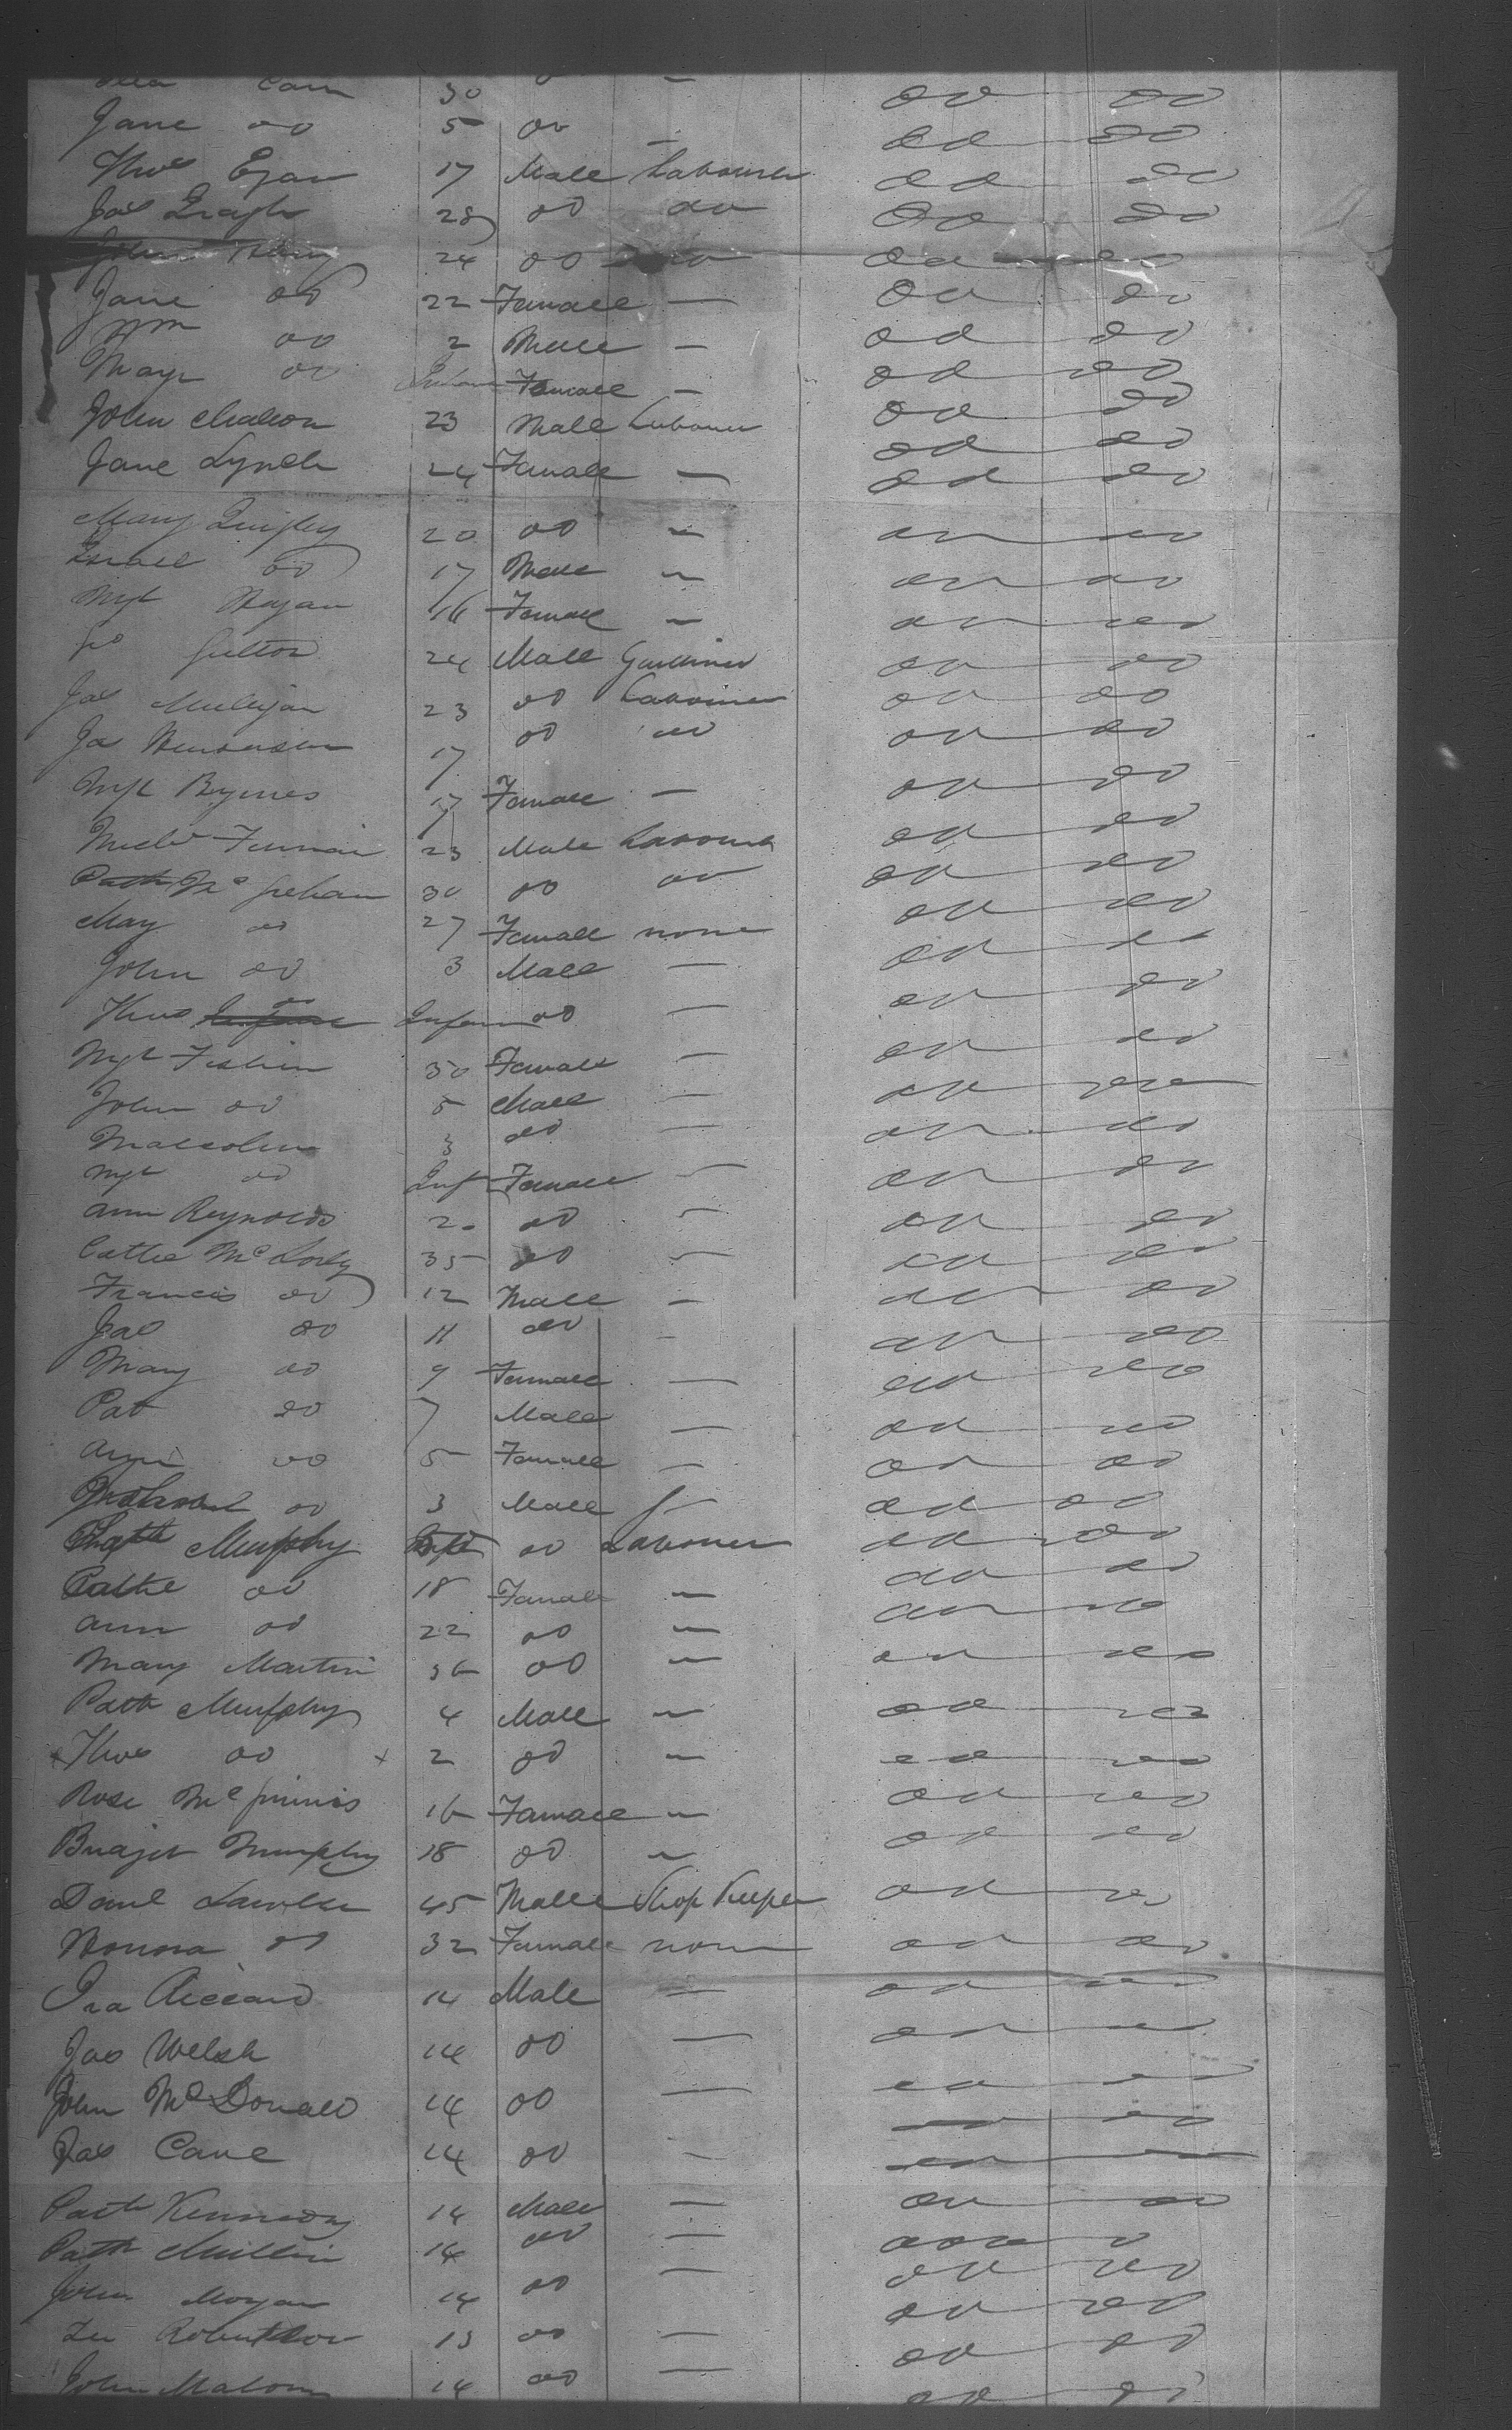 30 —
Jane do 5 do — do do
Thos Egan 17 Male Labourer do do
Jas 28 do do do do
John 24 do do do do
Jane do 22 Female — do do
Wm do 2 Male — do do
Mary do Infant Female — do do
John Mahon 23 Male Labourer do do
Jane Lynch 24 Female — do do
Mary Quigley 20 do — do do
Israel do 17 Male — do do
Mgt Hagan 16 Female — do do
24 Male do do
Jas Mulligan 23 do Labourer do do
Ja Henderson 17 do do do do
Mgt Byrnes 17 Female — do do
23 Male Labourer do do
Path Mc 30 do do do do
May do 27 Female none do do
John do 3 Male — do do
Thos do Infan do — do do
Mgt 30 Female — do do
John do 5 Male — do do
Malcolm 3 do — do do
Mgt do Inft Female — do do
Ann Reynolds 20 do — do do
Cathe 35 do — do do
Francis do 12 Male — do do
Jas do 11 do — do do
Mary do 9 Female — do do
Pat do 7 Male — do do
Ann do 5 Female — do do
do 3 Male — do do
Murphy do Labourer do do
Cathe do 18 Female — do do
Ann do 22 do — do do
Mary Martin 36 do — do do
Path Murphy 4 Male — do do
x Thos do x 2 do — do do
Rose McGinnis 16 Female — do do
Bridget Murphy 18 do — do do
Danl Lawler 45 Male Shop Keeper do do
Honora do 32 Female none do do
Ira 14 Male — do do
Jas Welsh 14 do — do do
John McDonald 14 do — do do
Jas Cane 14 do — do do
Path Kennedy 14 Male — do do
Path Mullin 14 do — do do
John Morgan 14 do — do do
13 do — do do
John Malone 14 do — do do